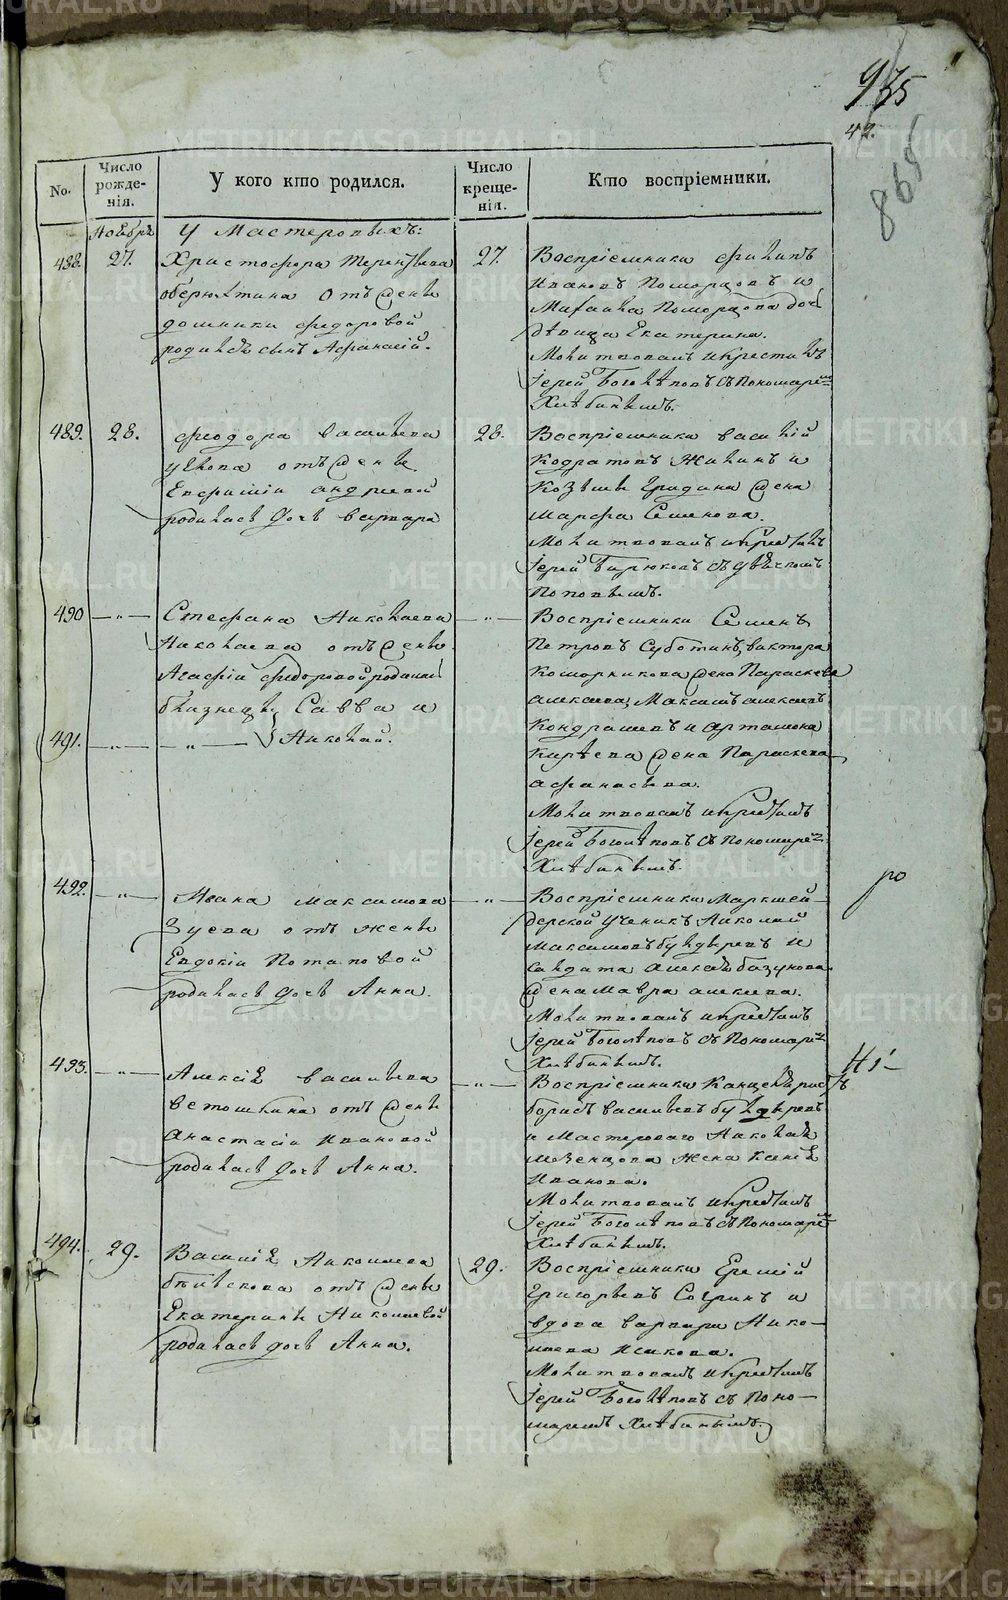 935
42.
865
No.
Число рожденія.
У кого кто родился.
Число крещенія.
Кто воспріемники.
Ноябрь
У Мастеровыхъ:
488.
27.
Христофора Терентьева
оберюхтина отъ жены
домники федоровой
родился сынъ Афанасій.
27.
Воспріемники филипъ
Ивановъ Поморцовъ и
Михаила Поморцова дочь
дѣвица Екатерина.
Молитвовалъ и крестилъ
Іерей Боголѣповъ съ Пономаремъ
Хлѣбинымъ.
489.
28.
феодора васильева
отъ жены
Евфиміи андреевой
родилась дочь варвара
28.
Воспріемники василій
Кодратовъ Жилинъ и
Козьмы Гридина жена
марфа Семенова.
Молитвовалъ и крестилъ
Іерей Бирюковъ съ дьячкомъ
Поповымъ.
490
— „ —
Стефана Николаева
Николаева отъ жены
Агафіи федоровой родились
близнецы Савва и
491.
— „ —
— „ —
Николай.
— „ —
Воспріемники Семенъ
Петровъ Суботинъ, виктора
Коморникова жена Параскева
алексеева, Максимъ алексеевъ
Кондрашевъ и артамона
Кирѣева жена Параскева
афанасьева.
Молитвовалъ и крестилъ
Іерей Боголѣповъ съ Пономаремъ
Хлѣбинымъ.
492.
— „ —
Ивана максимова
Зуева отъ жены
Евдокіи Потаповой
родилась дочь Анна.
— „ —
Воспріемники Маркшей-
дерской ученикъ Николай
максимовъ булдыревъ и
Салдата алексѣя базунова
жена мавра алексеева.
Молитвовалъ и крестилъ
Іерей Боголѣповъ съ Пономаремъ
Хлѣбинымъ.
493.
— „ —
Алексѣя васильева
ветошкина отъ жены
анастасіи Ивановой
родилась дочь Анна.
— „ —
Воспріемники Канцеляристъ
борисъ васильевъ булдыревъ
и Мастероваго Николая
мезенцова жена Ксенія
Иванова.
Молитвовалъ и крестилъ
Іерей Боголѣповъ съ Пономаремъ
Хлѣбинымъ.
494.
29.
Василія Николаева
отъ жены
Екатерины Николаевой
родилась дочь Анна.
29.
Воспріемники Еремій
Григорьевъ Согринъ и
вдова варвара Нико-
лаева Исакова.
Молитвовалъ и крестилъ
Іерей Боголѣповъ съ Поно-
маремъ Хлѣбинымъ.
ро
METRIKI.GASO-URAL.RU